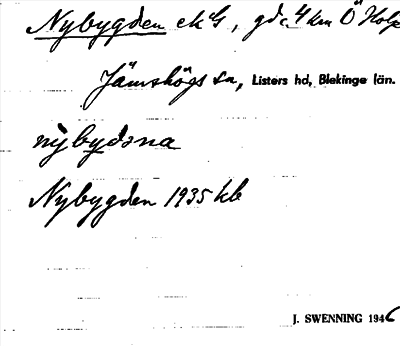 Nybygden ekG, gd c. 4 km Ö Holje
Jämshögs sn, Listers hd, Blekinge län.
nỳbydəna
Nybygden 1935 kb
J. SWENNING 1946